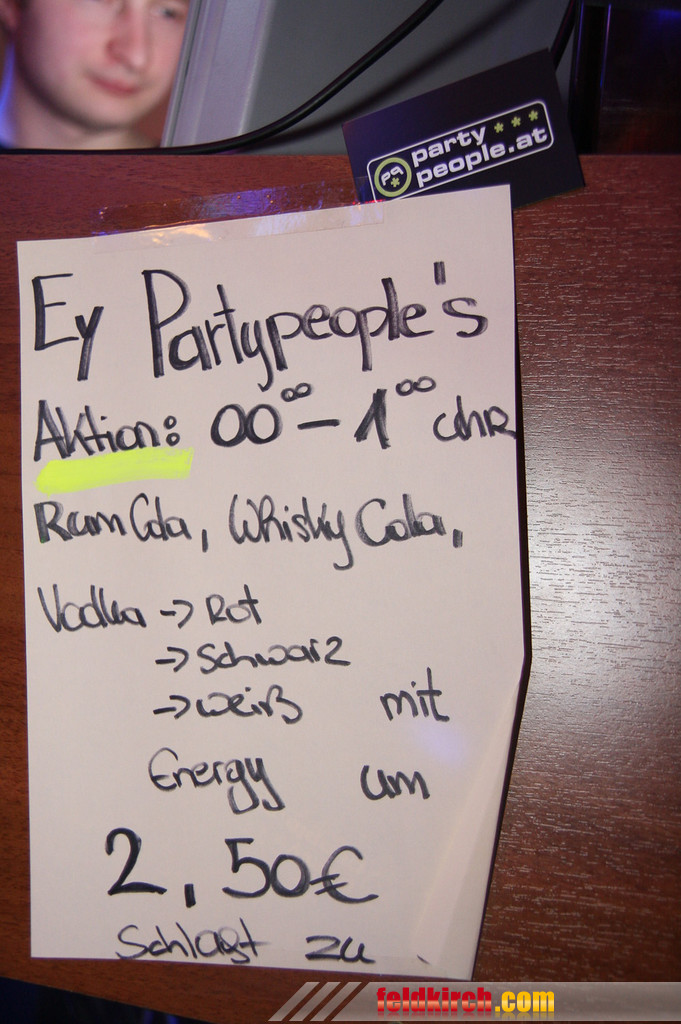 party ***
people.at
Ey Partypeople's
Aktion: 00⁰⁰ - 1⁰⁰ Uhr
Rum Cola, Whisky Cola,
Vodka -> Rot
-> Schwarz
-> weiß mit
Energy um
2,50€
Schlagt zu
feldkirch.com